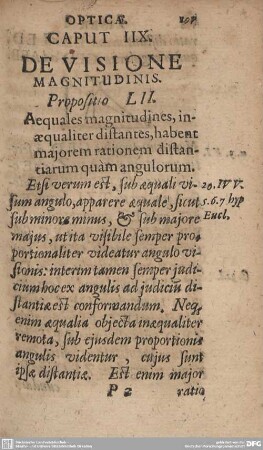 OPTICÆ.
CAPUT IIX.
DE VISIONE
MAGNITUDINIS.
Propositio LII.
Aequales magnitudines, in-
æqualiter distantes, habent
majorem rationem distan-
tiarum quàm angulorum.
Etsi verum est, sub æquali vi-
sum angulo, apparere æquale, sicut
sub minore minus, & sub majore
majus, ut ita visibile semper pro-
portionaliter videatur angulo vi-
sionis: interim tamen semper judi-
cium hoc ex angulis ad judiciũ di-
stantiæ est conformandum. Neq;
enim æqualia objecta inæqualiter
remota, sub ejusdem proportionis
angulis videntur, cujus sunt
ipsæ distantiæ. Est enim major
P 2 ratio
29. IV V.
5. 6. 7 hyp
Eucl.